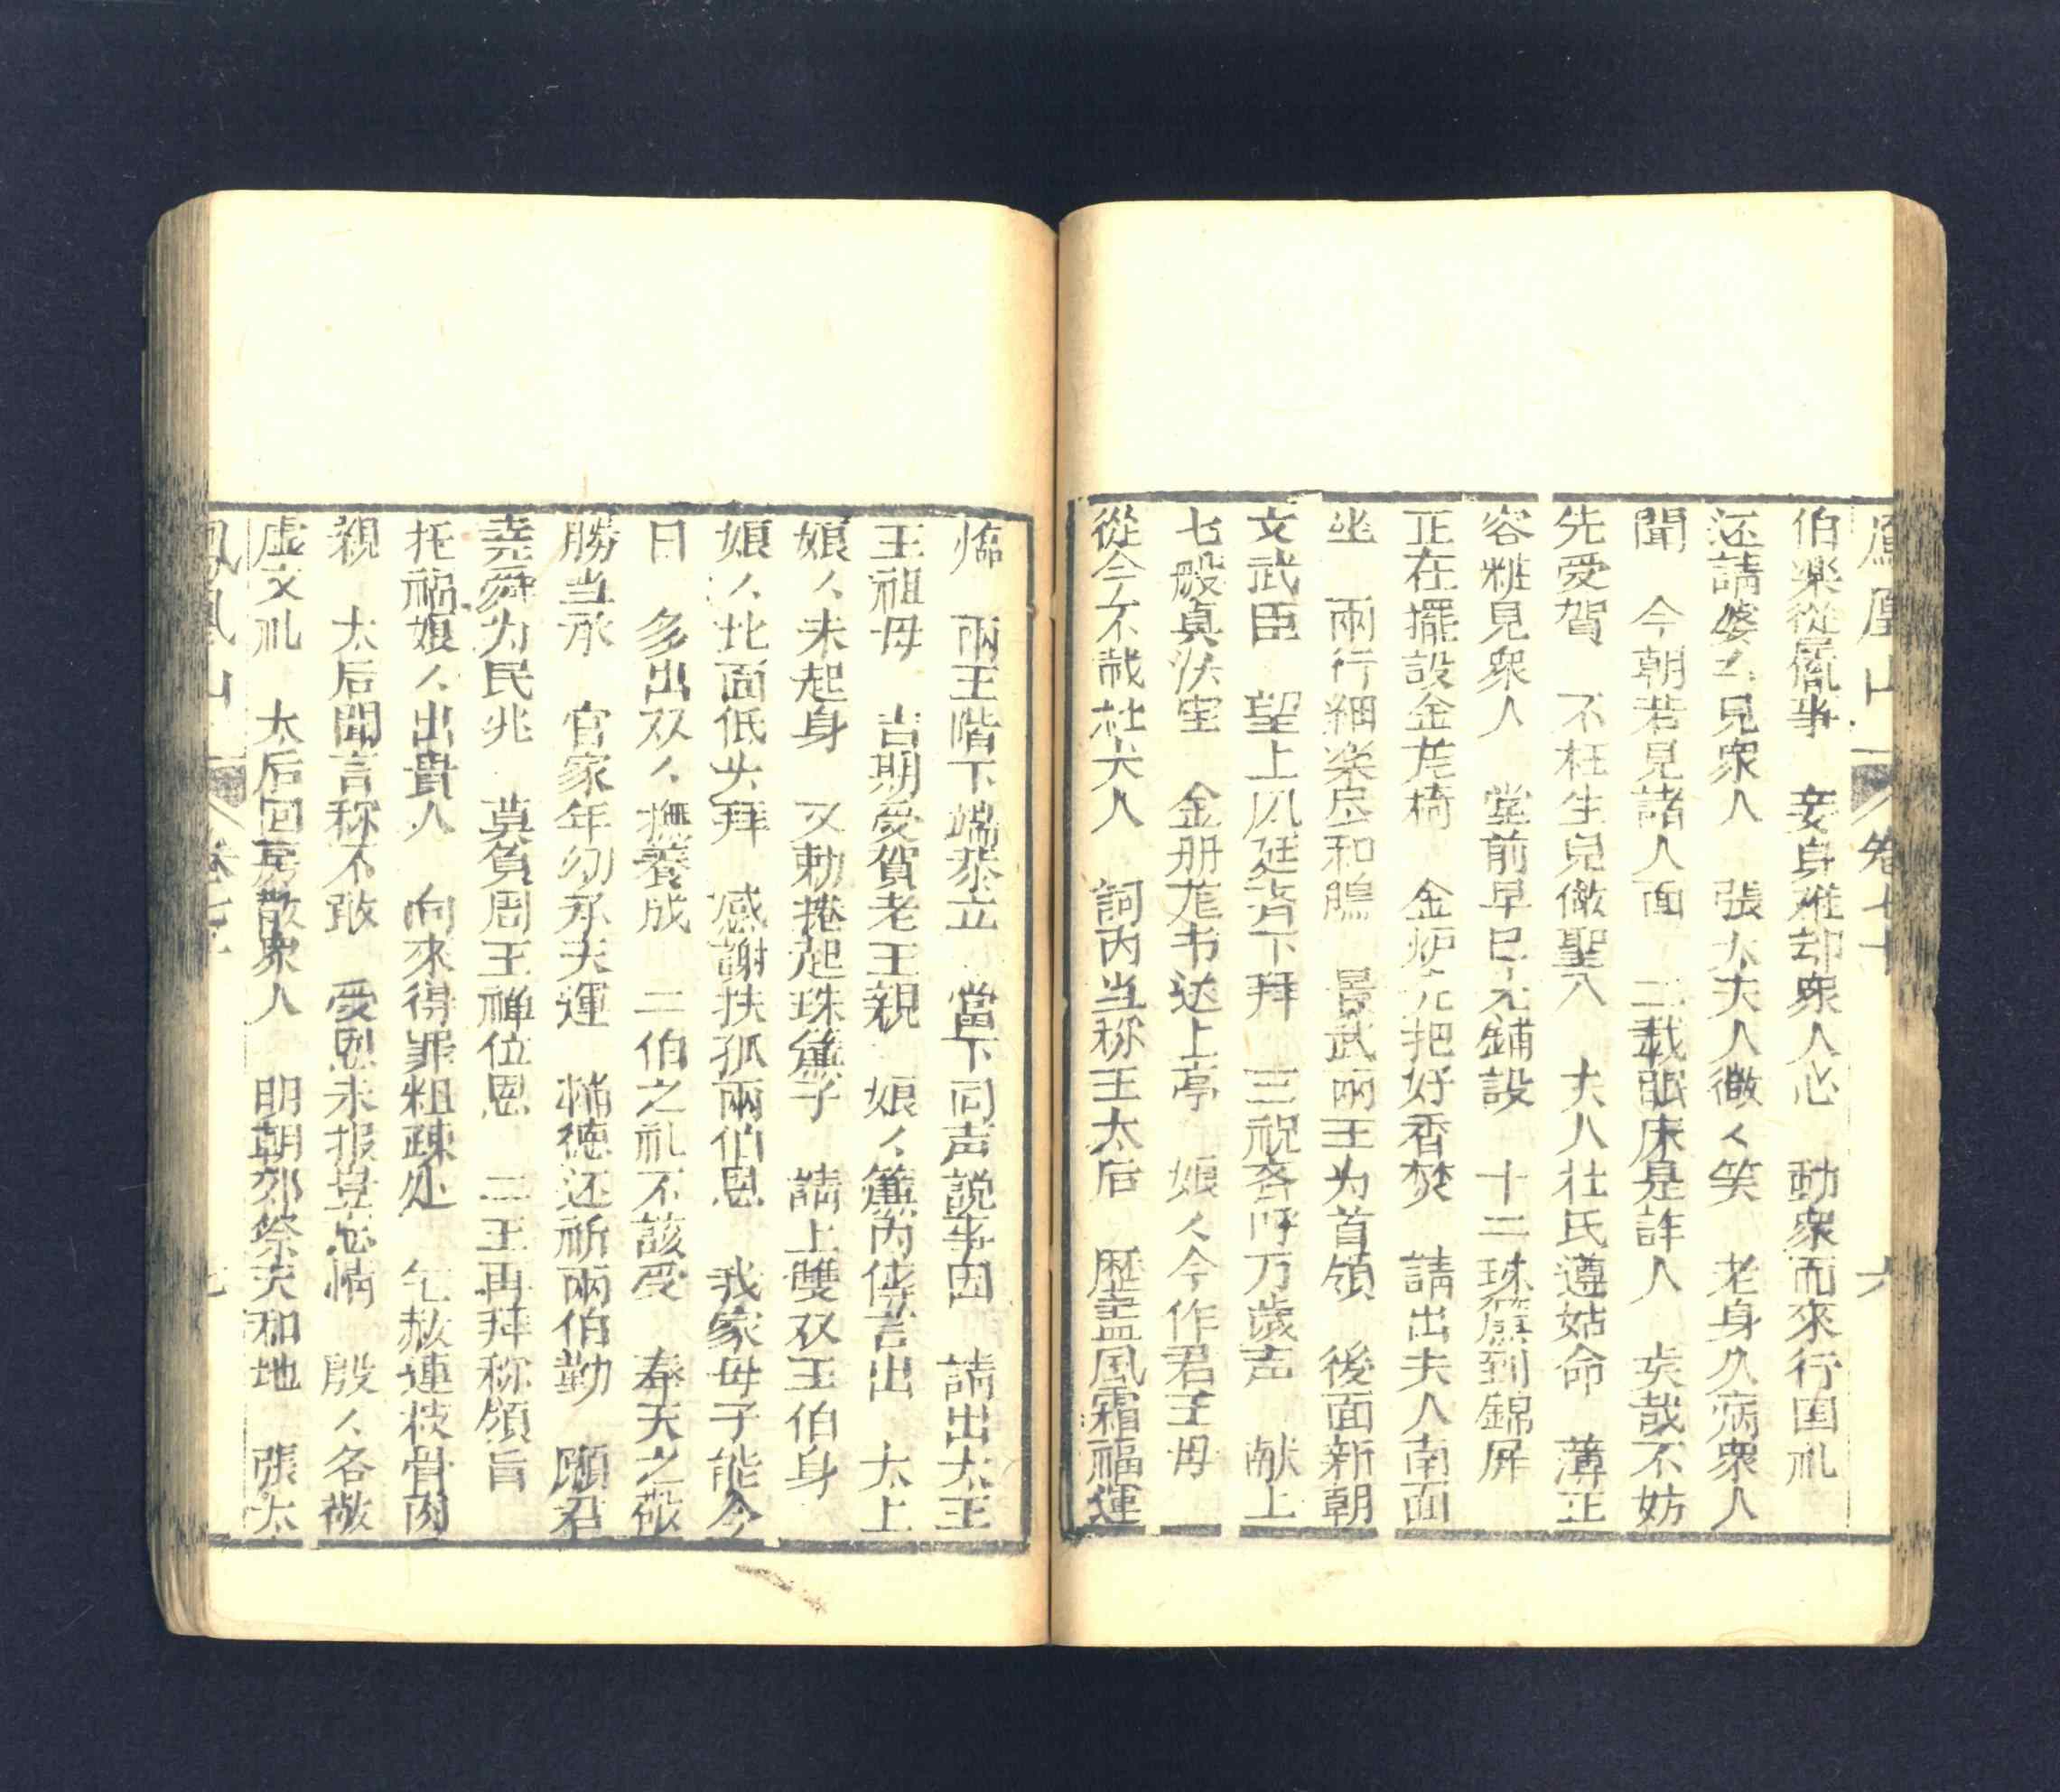 鳳凰山 卷七十 六
伯來從屬事 妾身难却衆人心 動衆而來行国礼
还請婆々見衆人 張太夫人微々笑 老身久病衆人
聞 今朝若見諸人面 二載眠床是詐人 夫哉不妨
先受賀 不枉生兒做聖人 夫人杜氏遵姑命 薄正
容粧見衆人 堂前早已先鋪設 十二珠簾到錦屏
正在擺設金龙椅 金炉先把好香焚 請出夫人南面
坐 兩行細楽尽和鳴 景武兩王为首領 後面新朝
文武臣 望上凡廷齐下拜 三祝齐呼万歲声 献上
七般真法宝 金册龙书送上亭 娘々今作君王母
從今不哉杜夫人 詞内当称王太后 歷盡風霜福運
臨 兩王階下端恭立 當下同声説事因 請出太王
王祖母 吉期受賀老王親 娘々簾内传言出 太上
娘々未起身 又勅捲起珠簾子 請上雙双王伯身
娘々北面低头拜 感謝扶孤兩伯恩 我家母子能今
日 多出双々撫養成 二伯之礼不該受 奉天之敬
勝当承 官家年幼承天運 補德还祈兩伯勤 願君
堯舜为民兆 莫負周王禅位恩 二王再拜称領旨
托福娘々出貴人 向來得罪粗疎处 乞赦連枝骨肉
親 太后聞言称不敢 受恩未报豈忘情 殷々各敬
虚文礼 太后回房散衆人 明朝郊祭天和地 張太
鳳凰山 卷七十 七